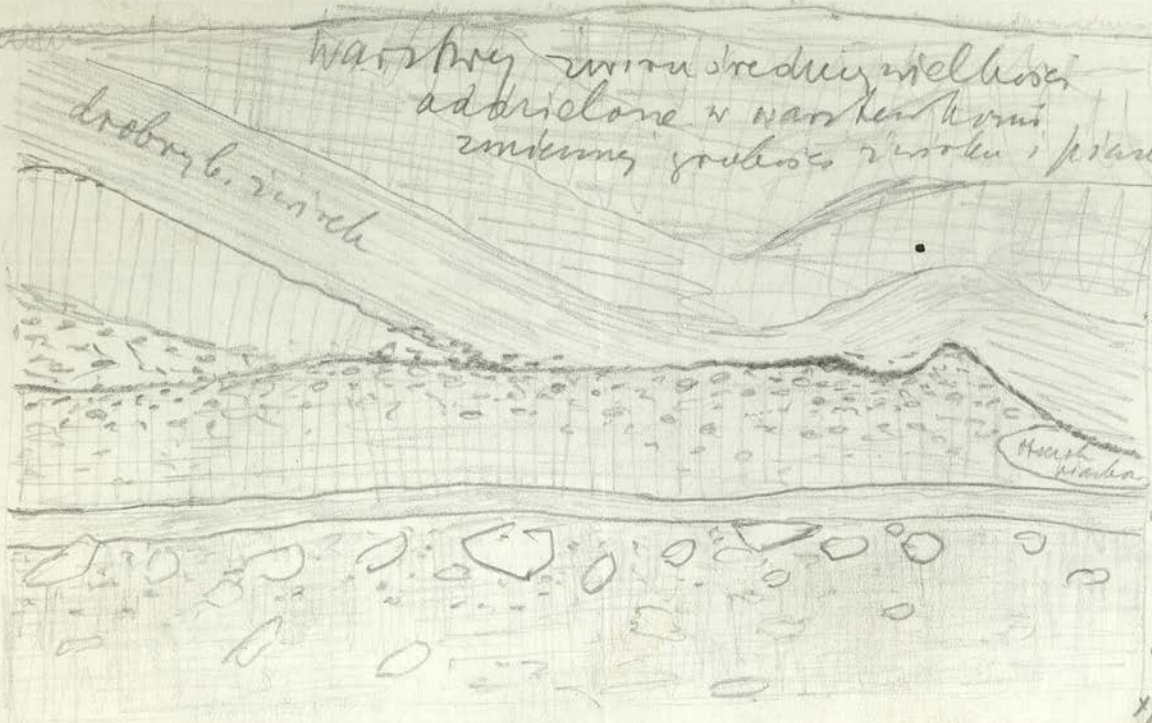 warstwy żwiru średniej wielkości
oddzielone w warstewkami
zmiennej grubości żwirku i piasc
drobny b. żwirek
piasku